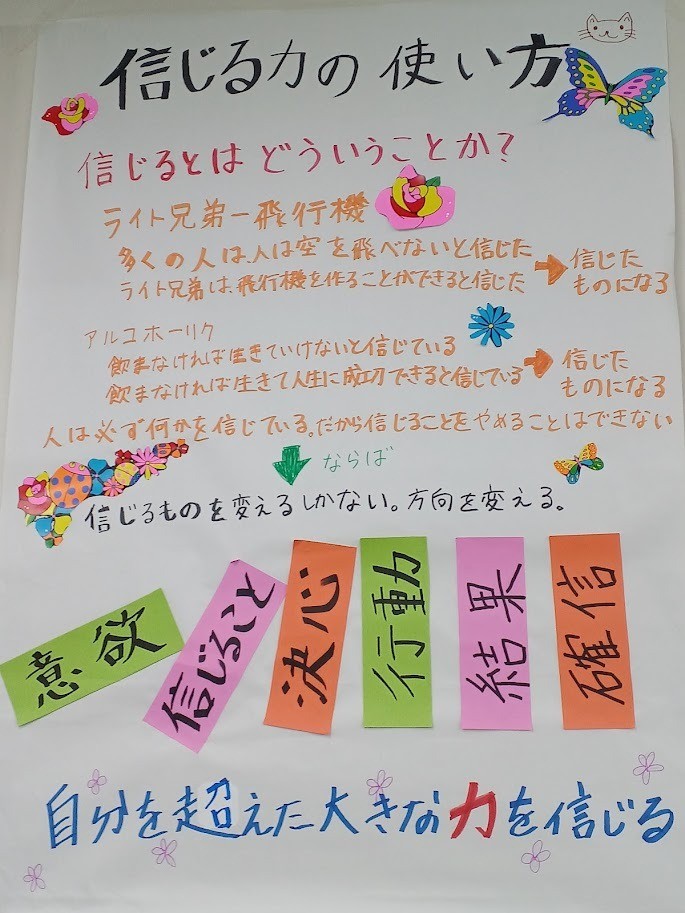 信じる力の使い方
信じるとはどういうことか？
ライト兄弟ー飛行機
多くの人は、人は空を飛べないと信じた
ライト兄弟は、飛行機を作ることができると信じた
信じた
ものになる
アルコホーリク
飲まなければ生きていけないと信じている
飲まなければ生きて人生に成功できると信じている
信じた
ものになる
人は必ず何かを信じている。だから信じることをやめることはできない
ならば
信じるものを変えるしかない。方向を変える。
意欲
信じること
決心
行動
結果
確信
自分を超えた大きな力を信じる